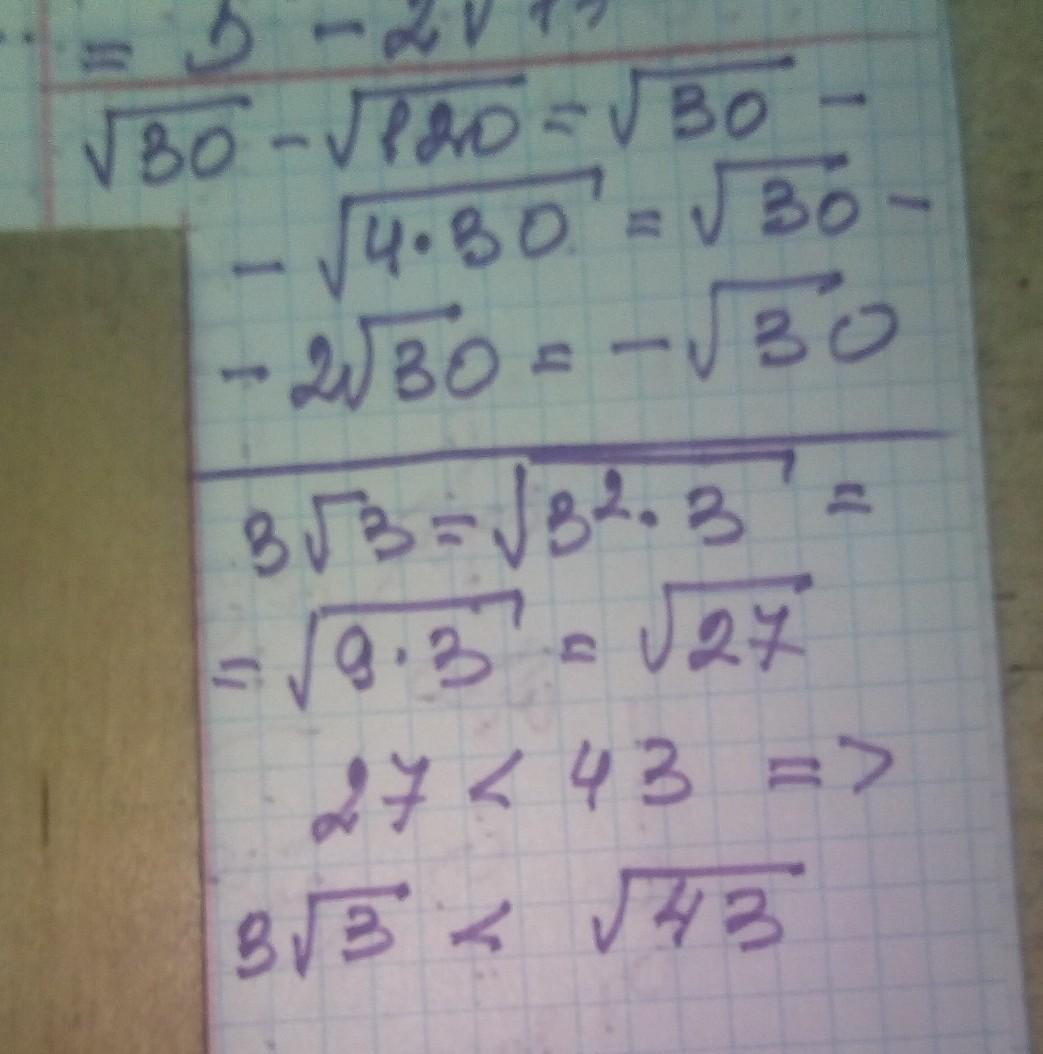 = 5 - 2√
√30 - √120 = √30 -
- √4·30 = √30 -
- 2√30 = - √30
3√3 = √3²·3 =
= √9·3 = √27
27 < 43 =>
3√3 < √43